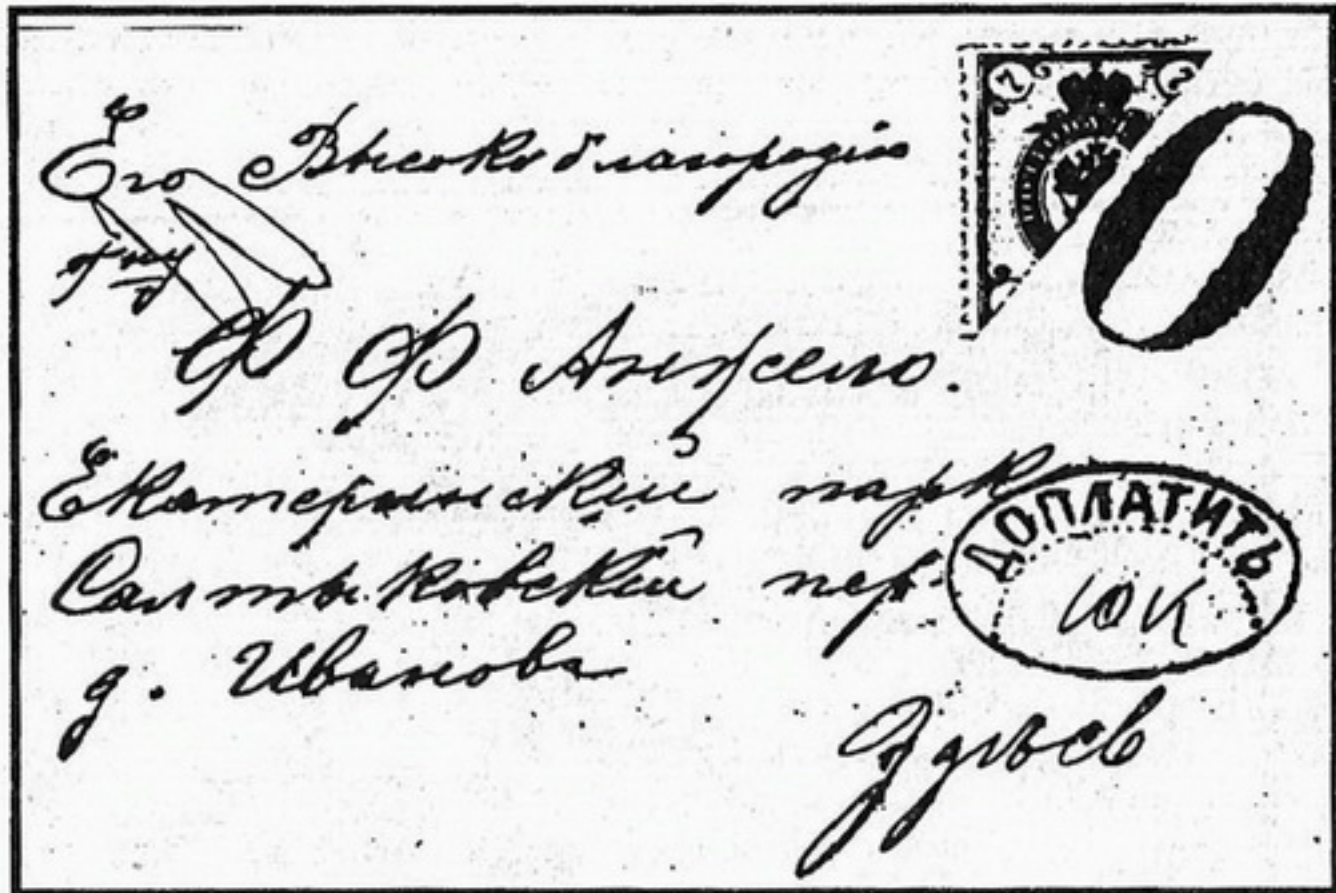 Его Высокоблагородію
Ф Ф Анжело.
Екатерынскій парк
Салтыковскій пер.
д. Иванова
Здѣсь
7 7
0
ДОПЛАТИТЬ
10 К